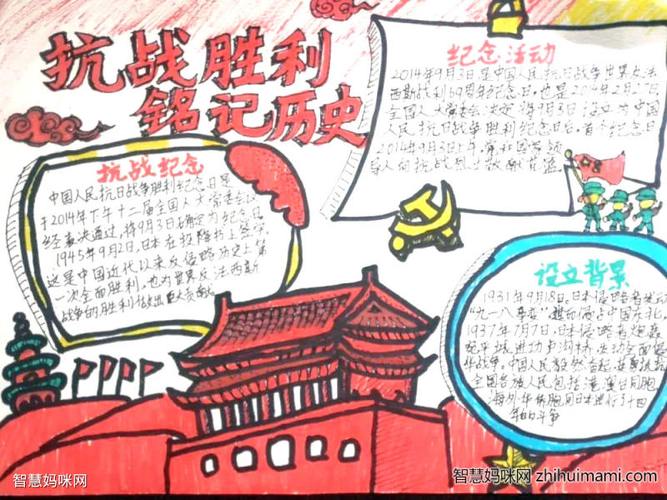 抗战胜利
铭记历史
纪念活动
2014年9月3日是中国人民抗日战争世界反法
西斯战利69周年纪念日,也是2014年2月27日
全国人大常委会决定将9月3日设立为中国
人民抗日战争胜利纪念日后,首个纪念日
2014年9月3日上午,
抗战纪念
中国人民抗日战争胜利纪念日是
于2014年下午十二届全国人大常委会以
经表决通过,将9月3日确定为纪念日
1945年9月2日,日本在投降书上签字
这是中国近代以来反侵略历史上第
一次全面胜利,也为世界反法西斯
战争的胜利做出巨大贡献
设立背景
1931年9月18日,日本侵略者发动
"九一八事变",占中国东北。
1937年7月7日,日本侵略者炮轰
宛平城进攻卢沟桥,发动全面侵
华战争。中国人民毅然奋起,
全国各族人民包括港澳台同胞
海外华侨同胞同日本进行了十四
年的斗争
智慧妈咪网
智慧妈咪网 zhihuimami.com